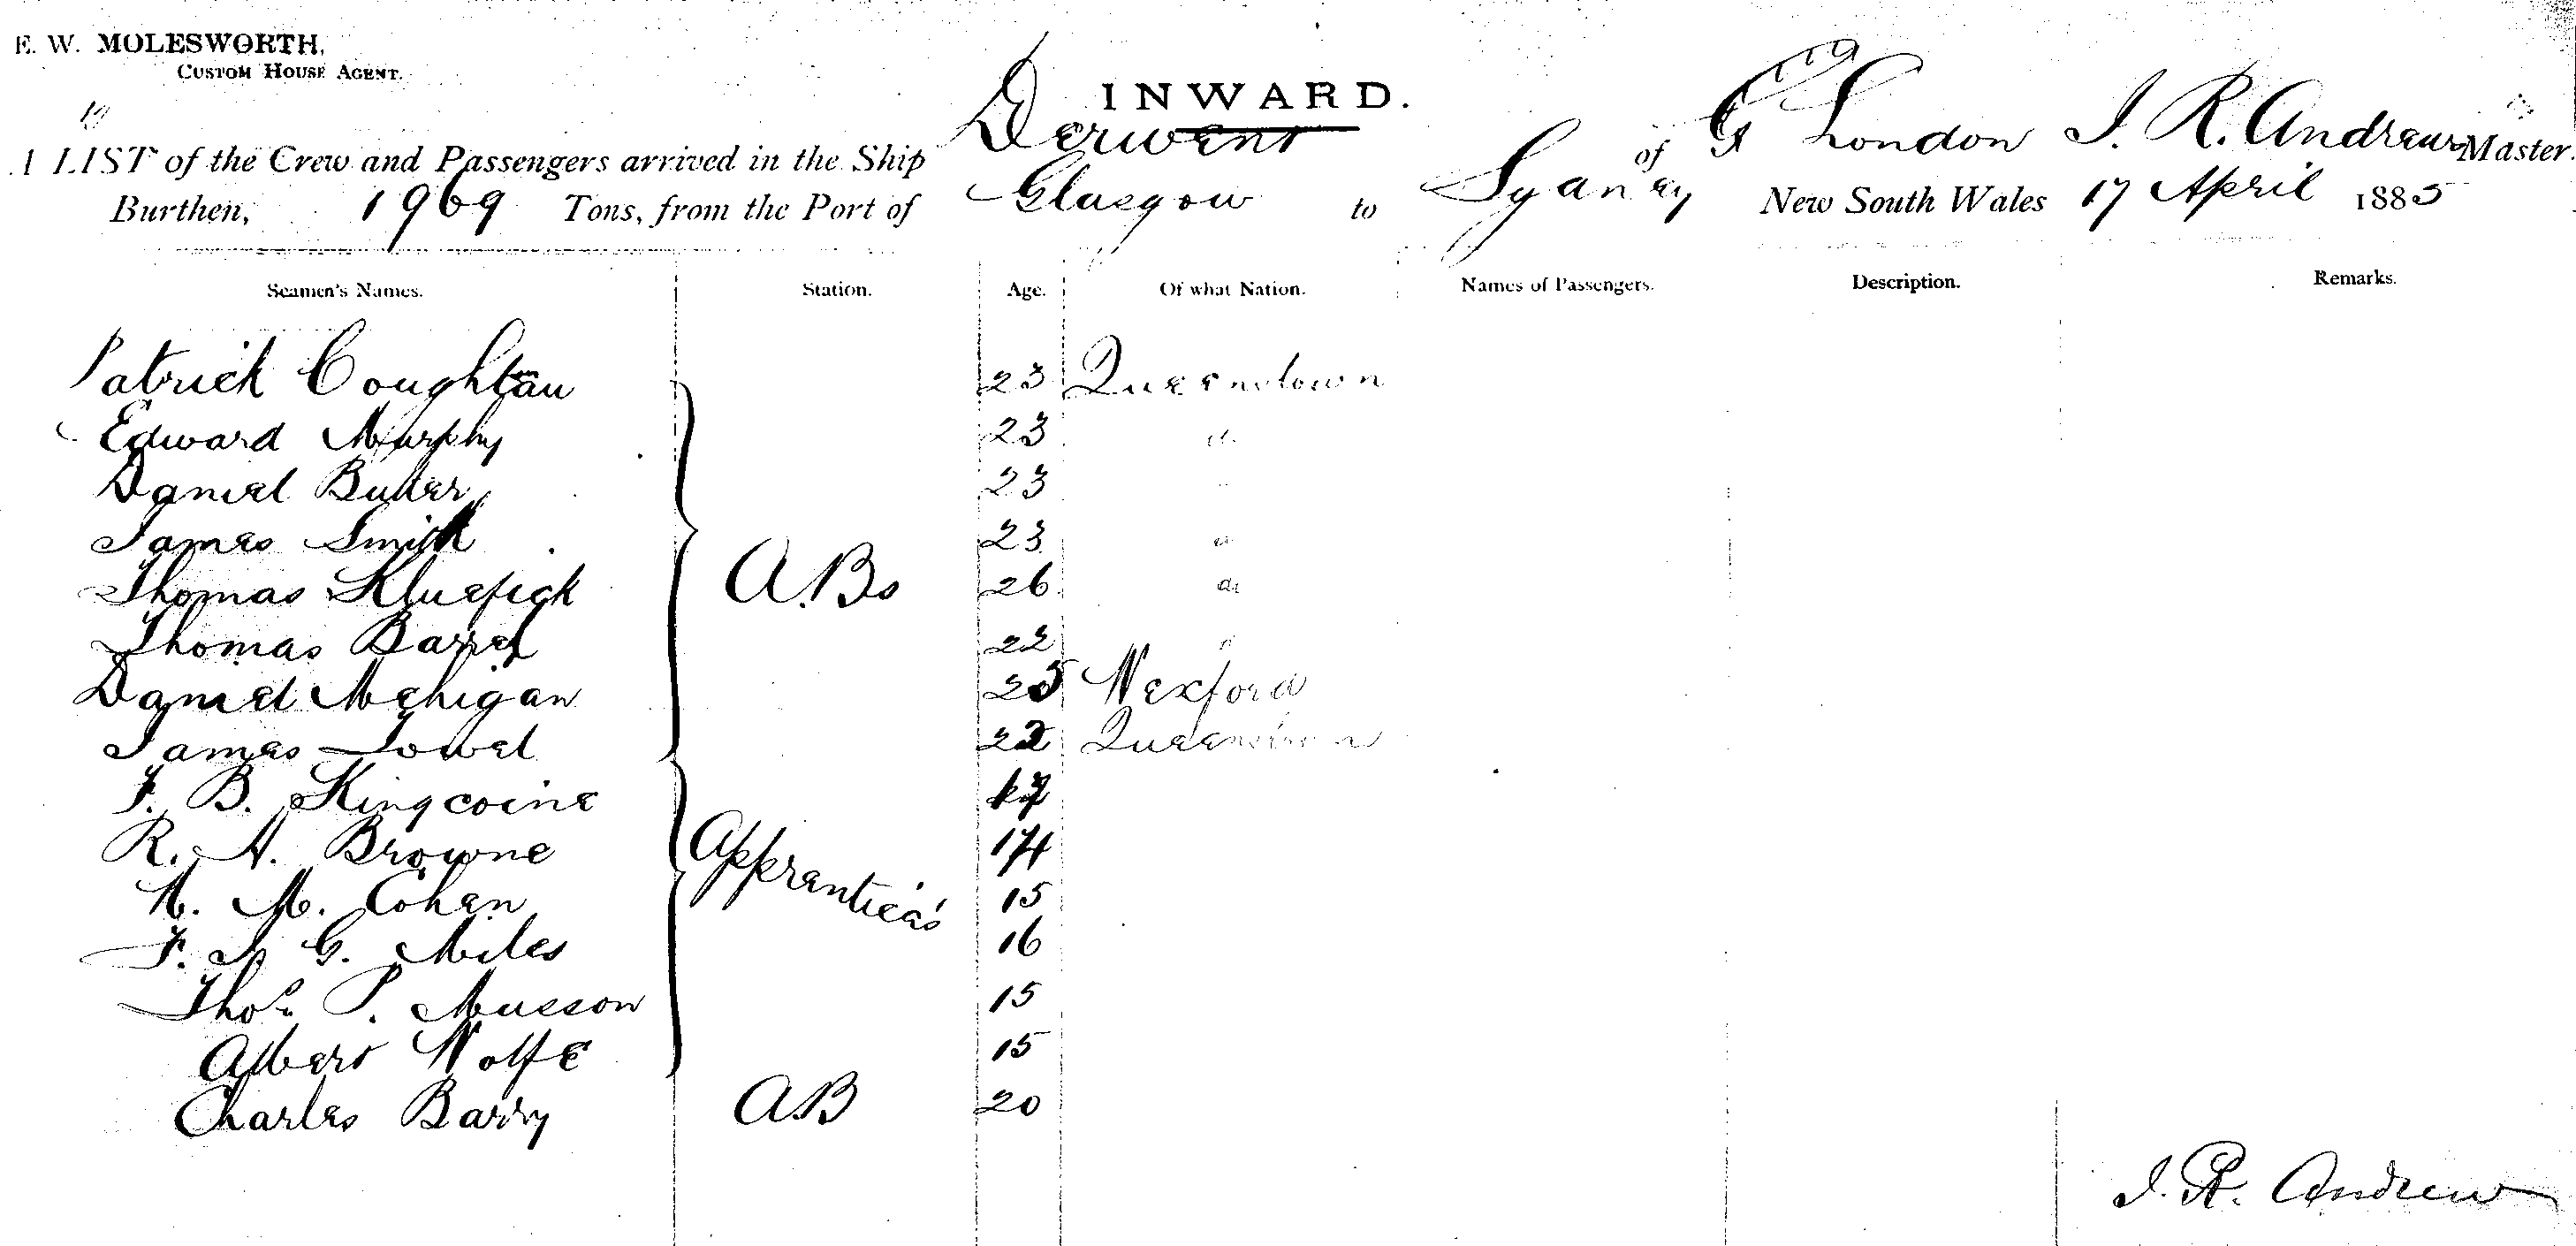 E. W. MOLESWORTH,
CUSTOM HOUSE AGENT.
INWARD.
A LIST of the Crew and Passengers arrived in the Ship Derwent of London J. R. Andrews Master.
Burthen, 1969 Tons, from the Port of Glasgow to Sydney New South Wales 17 April 1885
Seamen's Names. Station. Age. Of what Nation. Names of Passengers. Description. Remarks.
Patrick Coughlan 23 Queenstown
Edward Murphy 23
Daniel Butler 23
James Smith 23
Thomas 26
Thomas 22
Daniel Mehigan 25 Wexford
James 22 Queenstown
A.Bs
F. B. Kingcome 17
R. A. Browne 17
M. Cohen 15
F. G. Miles 16
Thos. P. Musson 15
Albert Wolfe 15
Apprentices
Charles Barry AB 20
J. R. Andrew